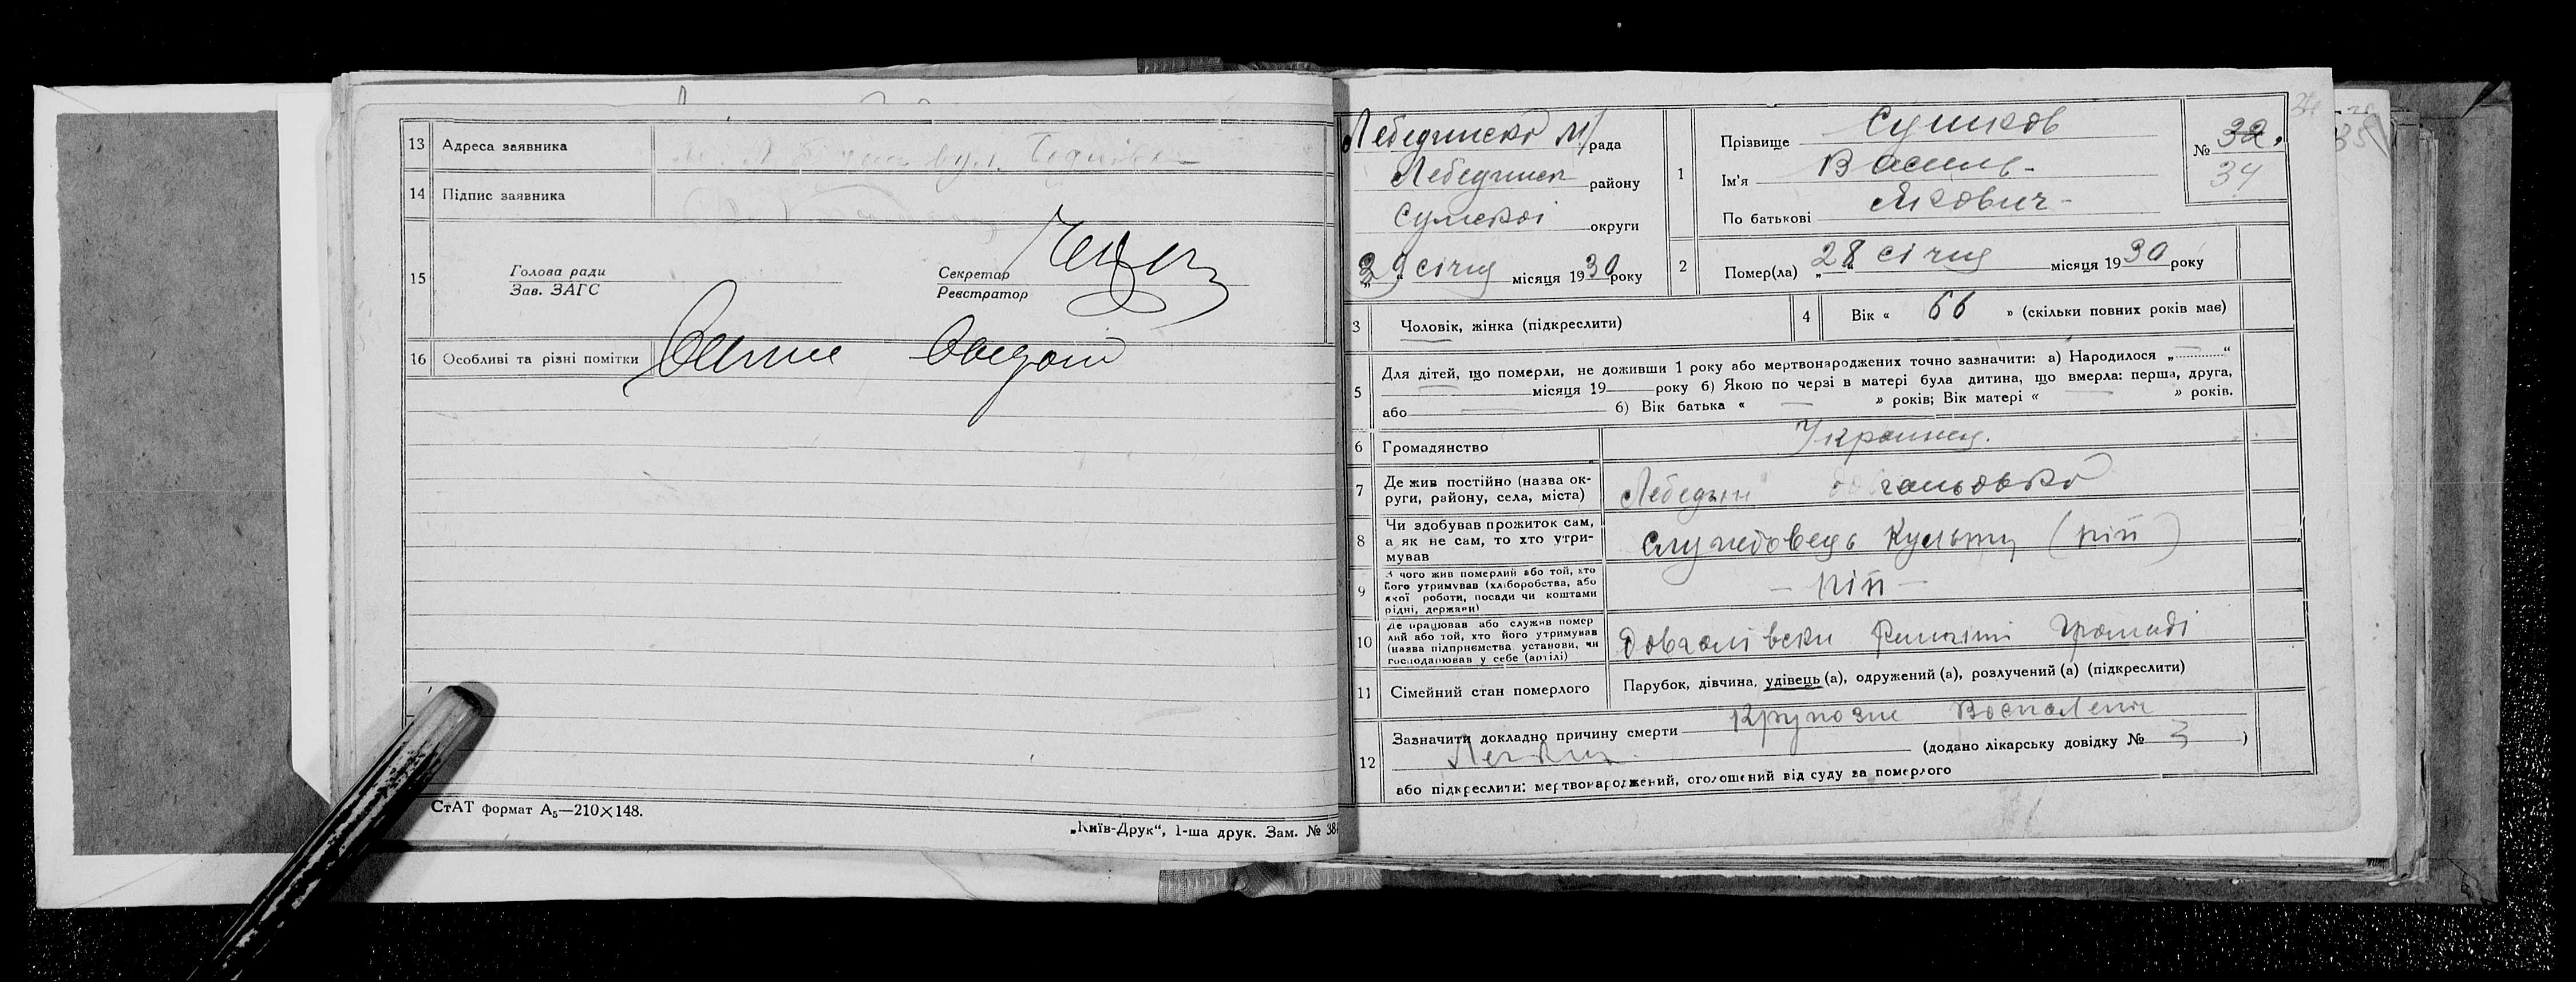 13 Адреса заявника вул.
14 Підпис заявника
15 Голова ради
Зав. ЗАГС
Секретар
Реєстратор
16 Особливі та різні помітки
СтАТ формат А₅—210×148.
„Київ-Друк“, 1-ша друк. Зам. № 38
Лебединско м/рада
Лебединск району
Сумскоі округи
29 січня місяця 1930 року
1 Прізвище Сушков
Ім'я Василь
По батькові Якович
№ 32.
34
2 Помер(ла) „28“ січня місяця 1930 року
3 Чоловік, жінка (підкреслити)
4 Вік « 66 » (скільки повних років має)
5 Для дітей, що померли, не доживши 1 року або мертвонароджених точно зазначити: а) Народилося „ “
місяця 19 року б) Якою по черзі в матері була дитина, що вмерла: перша, друга,
або б) Вік батька « » років; Вік матері « » років.
6 Громадянство Украинец.
7 Де жив постійно (назва ок-
руги, району, села, міста) Лебедин
8 Чи здобував прожиток сам,
а як не сам, то хто утри-
мував Службовець Культу (піп)
9 З чого жив померлий або той, хто
його утримував (хліборобства, або
якої роботи, посади чи коштами
рідні, держави) — піп —
10 Де працював або служив помер
лий або той, хто його утримував
(назва підприємства, установи, чи
господарював у себе (артілі) Громаді
11 Сімейний стан померлого Парубок, дівчина, удівець (а), одружений (а), розлучений (а) (підкреслити)
12 Зазначити докладно причину смерти Крупозне Воспаленя
Легких (додано лікарську довідку № 3 )
або підкреслити: мертвонароджений, оголошений від суду за померлого